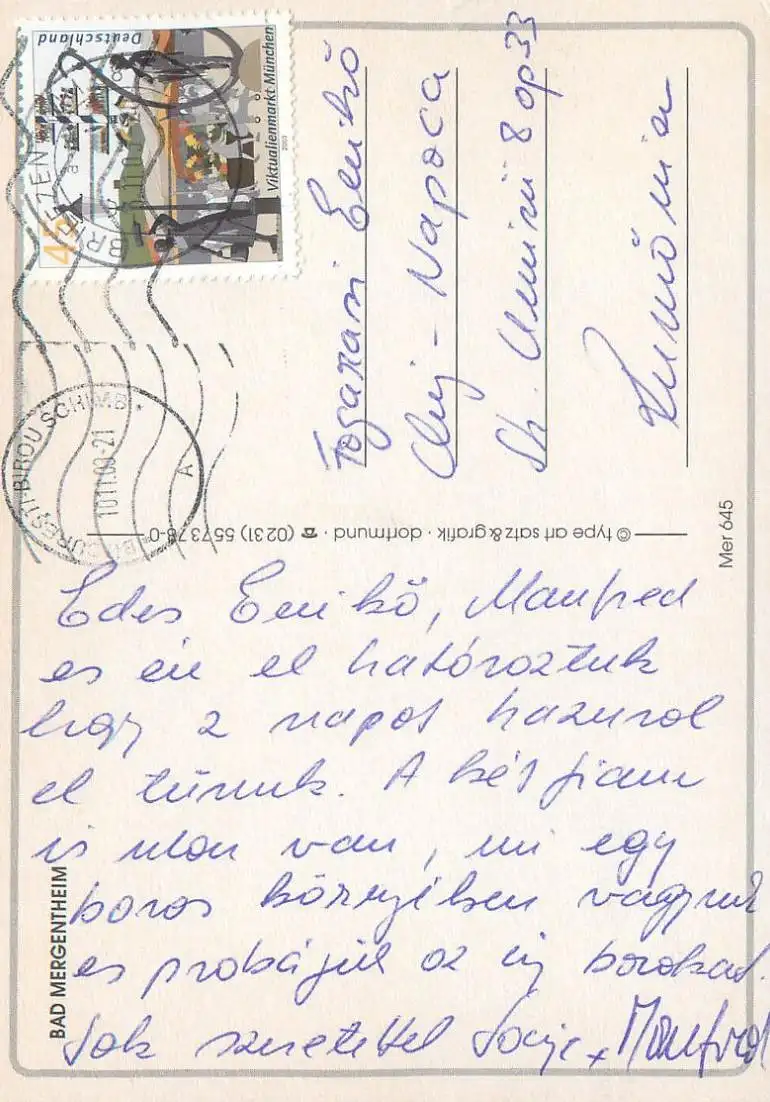 Deutschland
45
Viktualienmarkt München
2003
BRIEZEN
BUCUREȘTI BIROU SCHIMB
10.11.00-21
A
Fogarasi Enikő
Cluj-Napoca
Str. Unirii 8 op 33
Románia
© type art satz & grafik · dortmund · ☎ (0231) 557378-0
Mer 645
BAD MERGENTHEIM
Edes Enikő, Manfred
es én el határoztuk
hogy 2 napot hazurol
el tünük. A két fiam
is uton van, mi egy
boros környében vagyunk
es probájuk az új borokat.
Sok szeretettel + Manfred